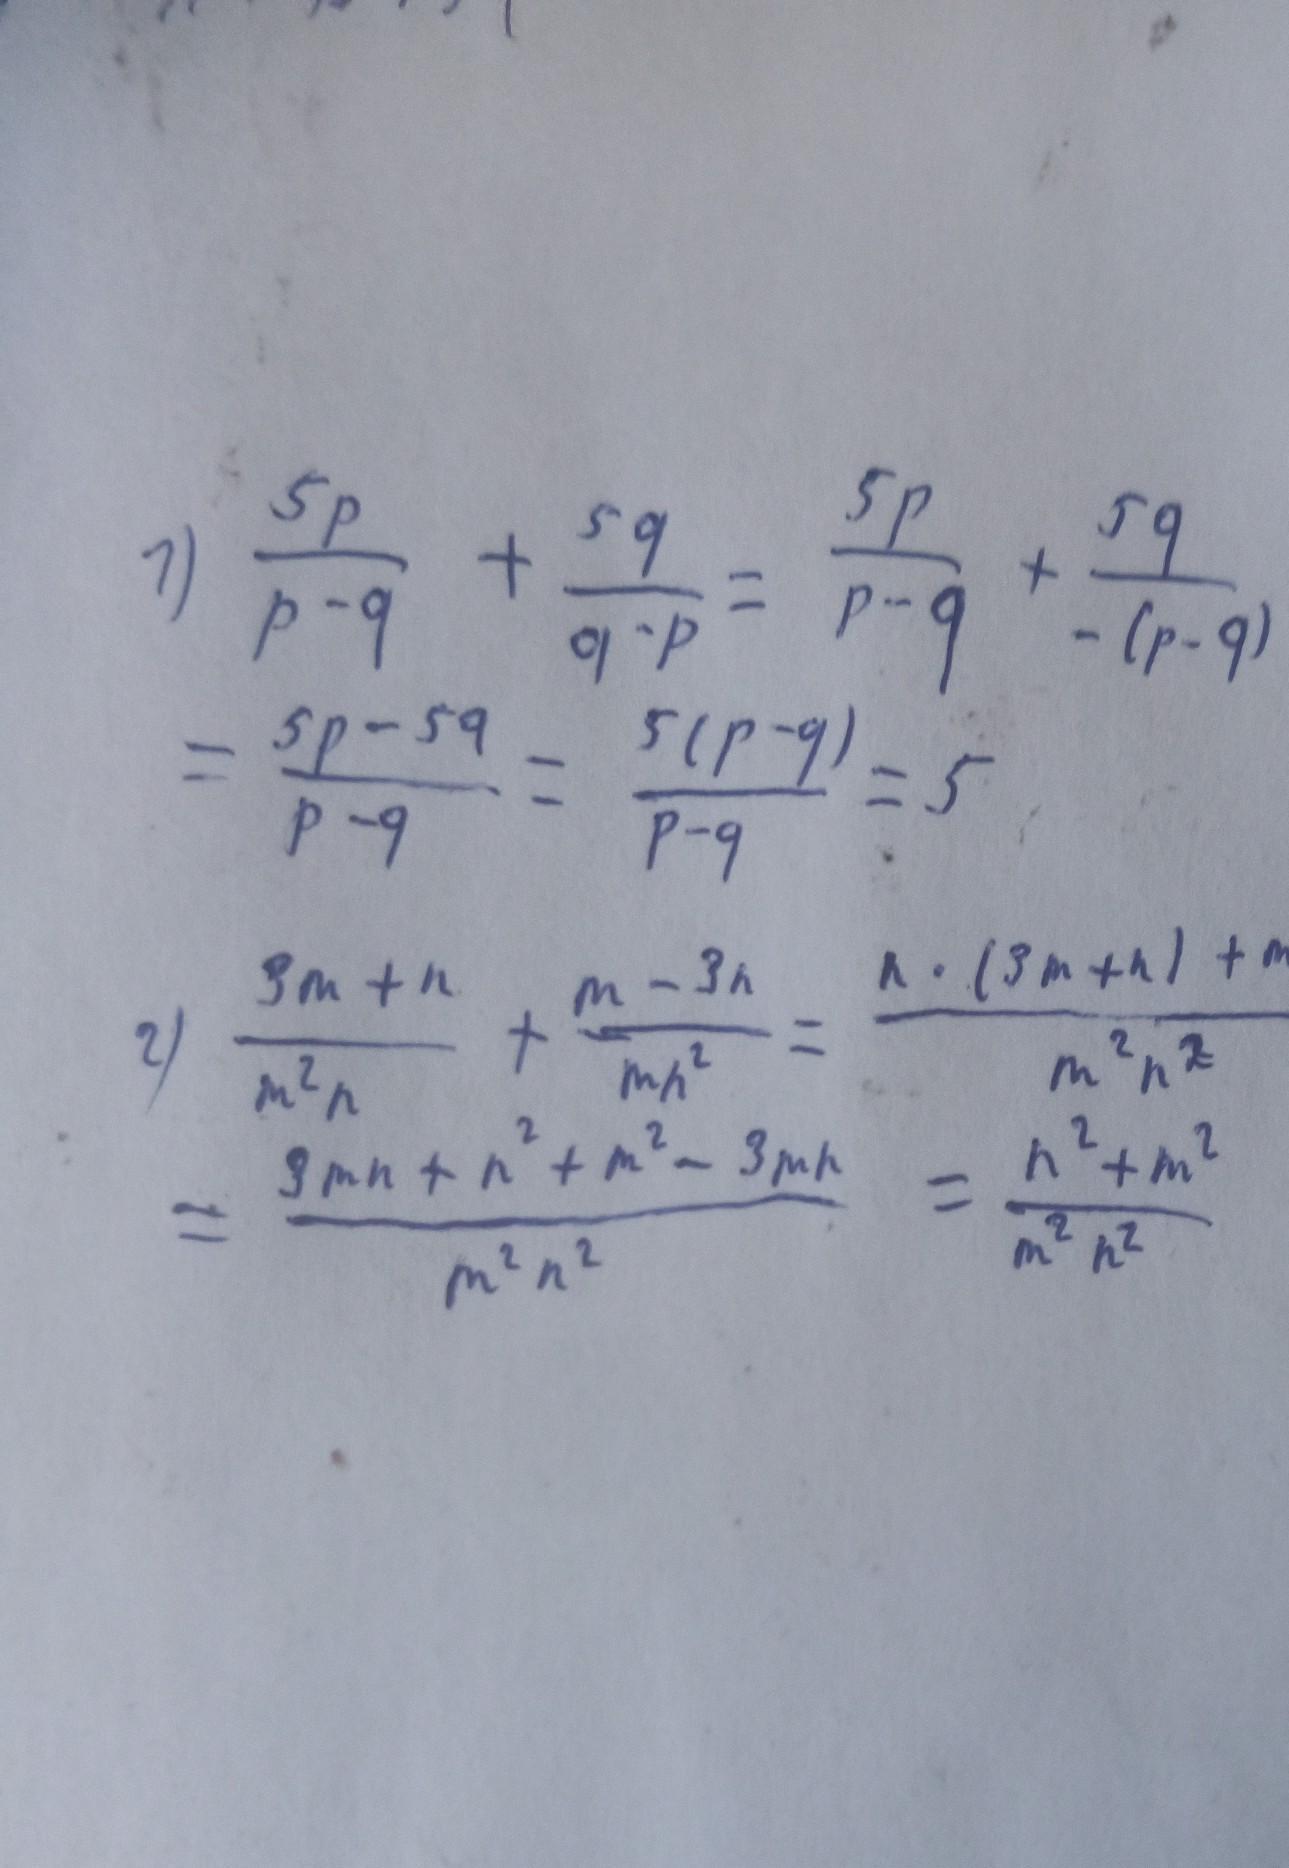 1) 5p/(p-q) + 5q/(q-p) = 5p/(p-q) + 5q/(-(p-q))
= (5p-5q)/(p-q) = 5(p-q)/(p-q) = 5
2) (3m+n)/(m²n) + (m-3n)/(mn²) = (n·(3m+n)+m)/(m²n²)
= (3mn+n²+m²-3mn)/(m²n²) = (n²+m²)/(m²n²)